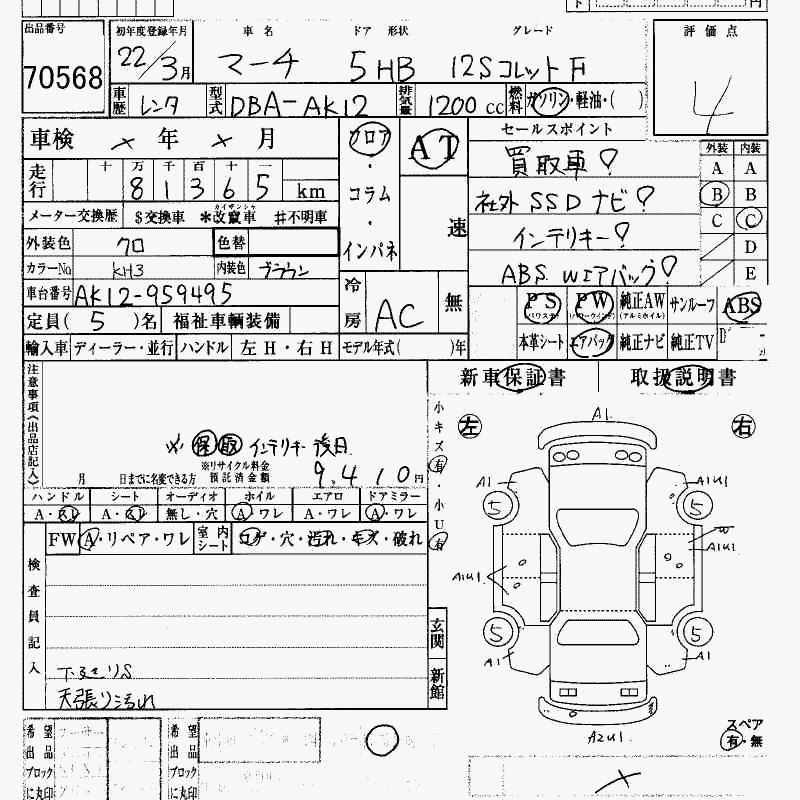 出品番号 初年度登録年月 車名 ドア 形状 グレード 評価点
70568 22/3月 マーチ 5HB 12Sコレット F 4
車歴 レンタ 型式 DBA-AK12 排気量 1200cc 燃料 ガソリン・軽油・( )
車検 × 年 × 月 フロア・コラム・インパネ AT 速 セールスポイント
買取車!
社外 SSD ナビ!
インテリキー!
ABS Wエアバッグ!
外装 内装
A A
B B
C C
D
E
走行 十 万 千 百 十 一
8 1 3 6 5 km
メーター交換歴 $交換車 *改竄車 #不明車
カイザンシャ
外装色 クロ 色替
カラーNo KH3 内装色 ブラウン
車台番号 AK12-959495
冷房 AC 無
定員( 5 )名 福祉車輌装備
輸入車 ディーラー・並行 ハンドル 左H・右H モデル年式( )年
PS PW 純正AW サンルーフ ABS
(パワステ) (パワーウインド) (アルミホイル)
本革シート エアバック 純正ナビ 純正TV
新車保証書 取扱説明書
注意事項(出品店記入)
※ 保 取 インテリキー 後日
※リサイクル料金
月 日までに名変できる方 預託済金額 9,410円
ハンドル シート オーディオ ホイル エアロ ドアミラー
A・スレ A・スレ 無し・穴 A・ワレ A・ワレ A・ワレ
FW A・リペア・ワレ 室内シート コゲ・穴・汚れ・キズ・破れ
小キズ 有・小U 有
検査員記入
下まわりS
天張り汚れ
玄関
新館
左 右
A1
A1 A1U1
5 5
W
A1U1 A1U1
5 5
A1 A1
A2U1
スペア
有・無
希望出品ブロックに丸印
希望出品ブロックに丸印
○
×